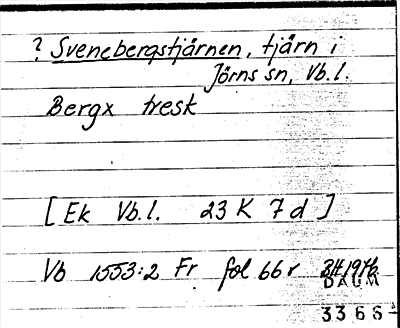 ? Svenebergstjärnen, tjärn i
Jörns sn, Vb.l.
Bergx tresk
[Ek Vb.l. 23 K 7 d]
Vb 1553:2 Fr fol 66 r
DAUM